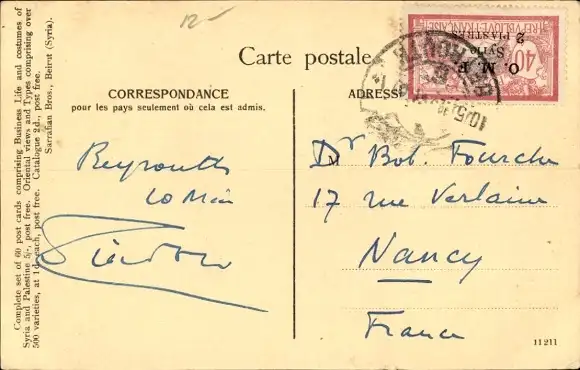 12-
Carte postale
CORRESPONDANCE
pour les pays seulement où cela est admis.
ADRESSE
Complete set of 60 post cards comprising Business Life and costumes of
Syria and Palestine 5/-, post free. Oriental views and Types comprising over
500 varieties, at 1 d. each, post free. Catalogue 2d., post free.
Sarrafian Bros., Beirut (Syria).
REPUBLIQUE FRANÇAISE
40
O. M. F.
Syrie
2 PIASTRES
Beyrouth
20 Mai
Dr Bob. Fourche
17 rue Verlaine
Nancy
France
11211